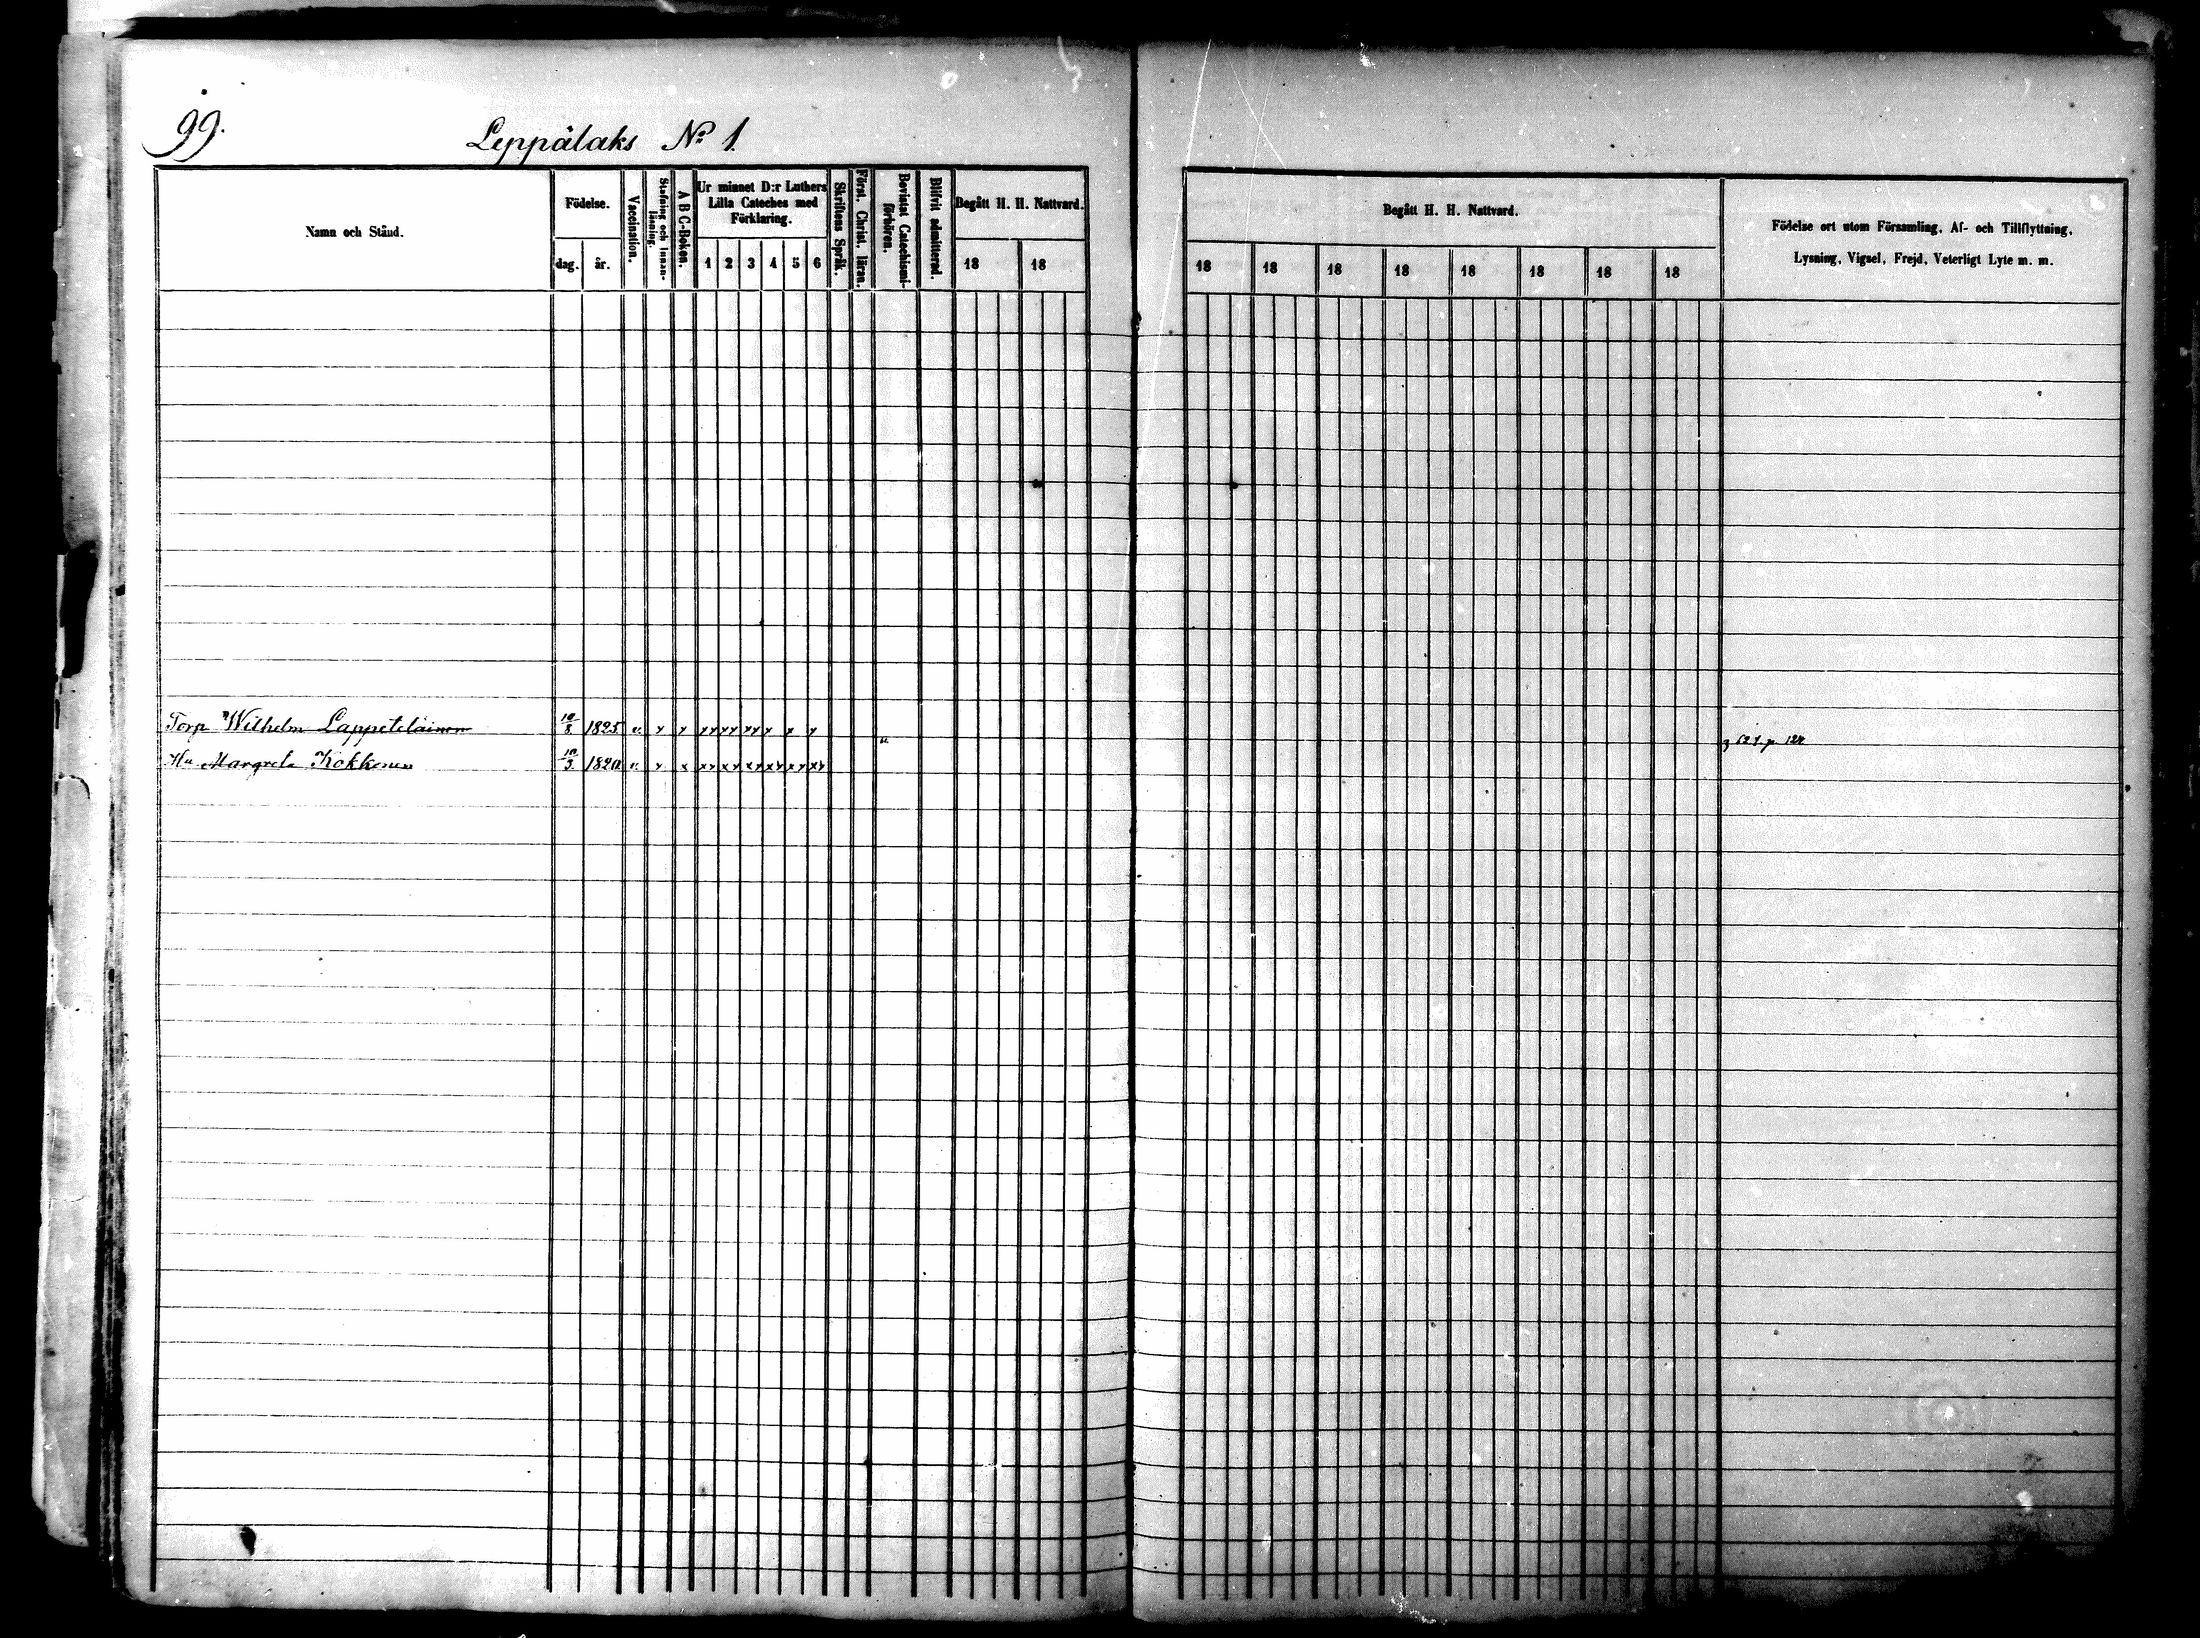 99.
Leppälaks No 1.
Namn och Stånd.
Födelse.
dag.
år.
Vaccination.
Stafning och Innan-
läsning.
A B C-Boken.
Ur minnet D:r Luthers
Lilla Cateches med
Förklaring.
1 2 3 4 5 6
Skriftens Språk.
Först. Christ. läran.
Bevistat Catechismi-
förhören.
Blifvit admitterad.
Begått H. H. Nattvard.
18 18
Begått H. H. Nattvard.
18 18 18 18 18 18 18 18
Födelse ort utom Församling, Af- och Tillflyttning,
Lysning, Vigsel, Frejd, Veterligt Lyte m. m.
Torp Wilhelm Lappeteläinen 10/8 1825 v.
Hu Margreta Kokkonen 10/3 1820 v.